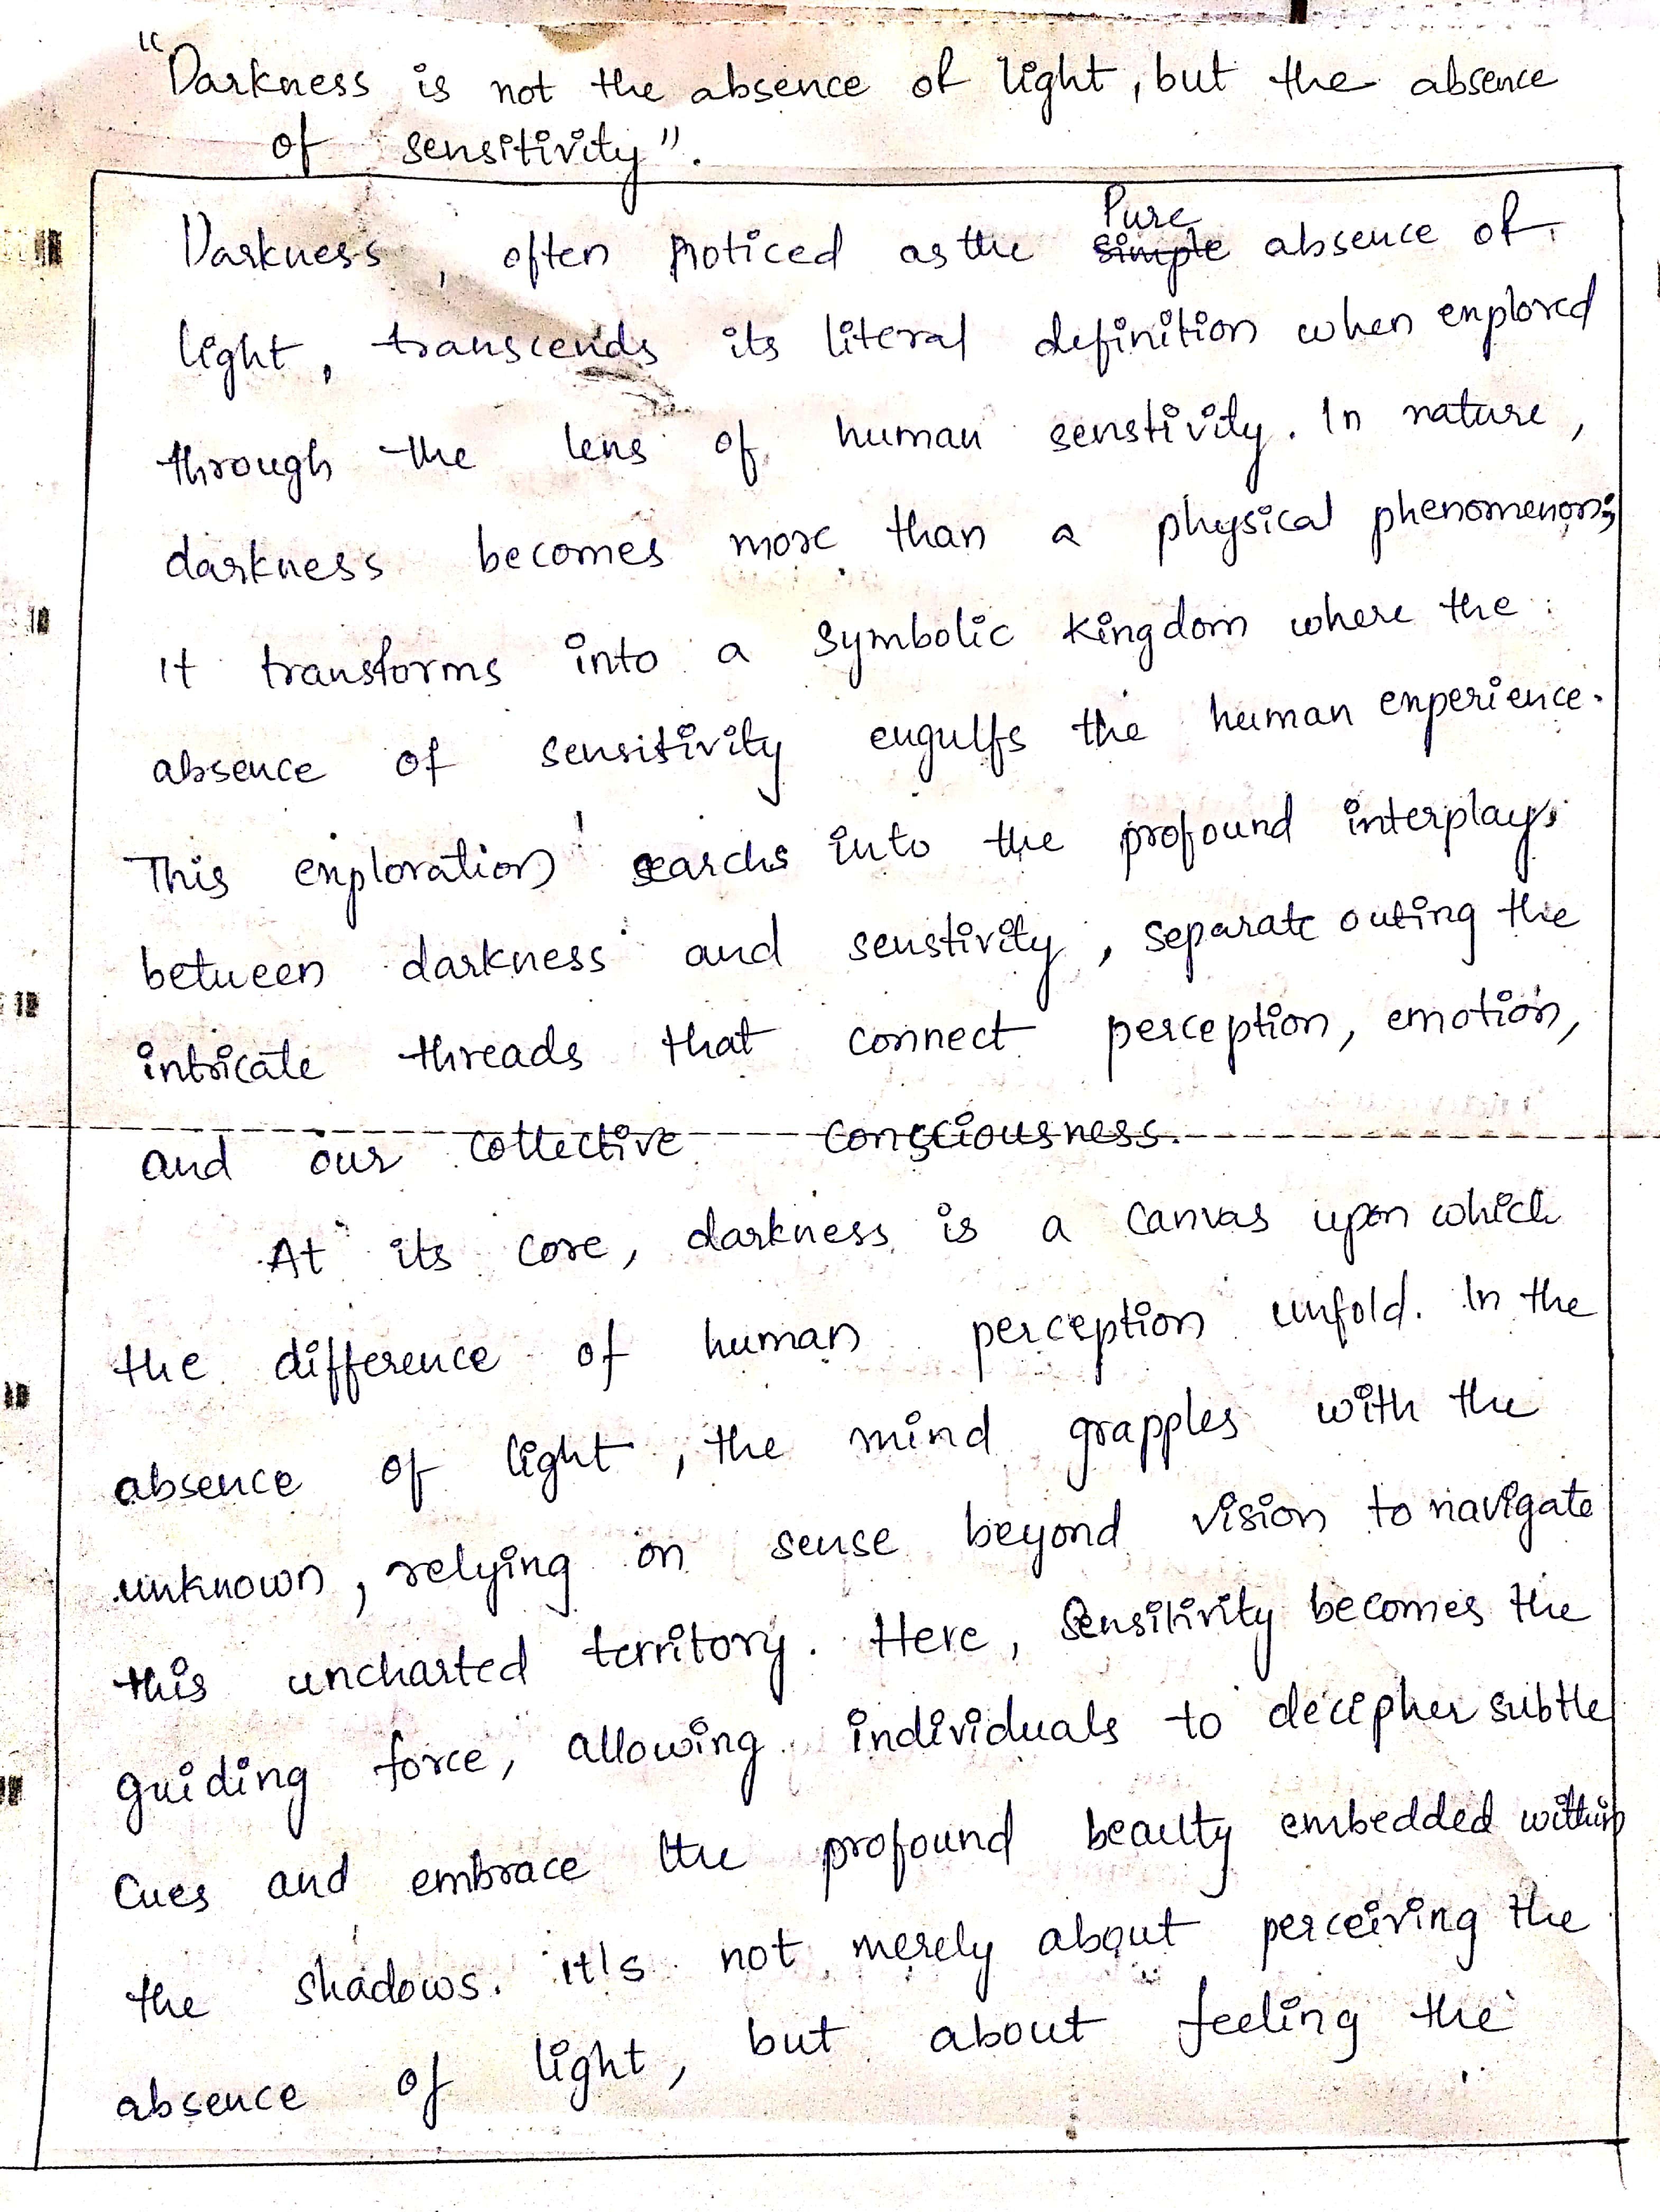 "Darkness is not the absence of light, but the absence
of sensitivity".
Pure
Darkness, often noticed as the simple absence of
light, transcends its literal definition when explored
through the lens of human senstivity. In nature,
darkness becomes more than a physical phenomenon;
it transforms into a symbolic kingdom where the
absence of sensitivity engulfs the human experience.
This exploration searchs into the profound interplay
between darkness and senstivity, separate outing the
intricate threads that connect perception, emotion,
and our collective consciousness.
At its core, darkness is a canvas upon which
the difference of human perception unfold. In the
absence of light, the mind grapples with the
unknown, relying on sense beyond vision to navigate
this uncharted territory. Here, Sensitivity becomes the
guiding force, allowing individuals to decipher subtle
Cues and embrace the profound beauty embedded within
the shadows. it's not merely about perceiving the
absence of light, but about feeling the